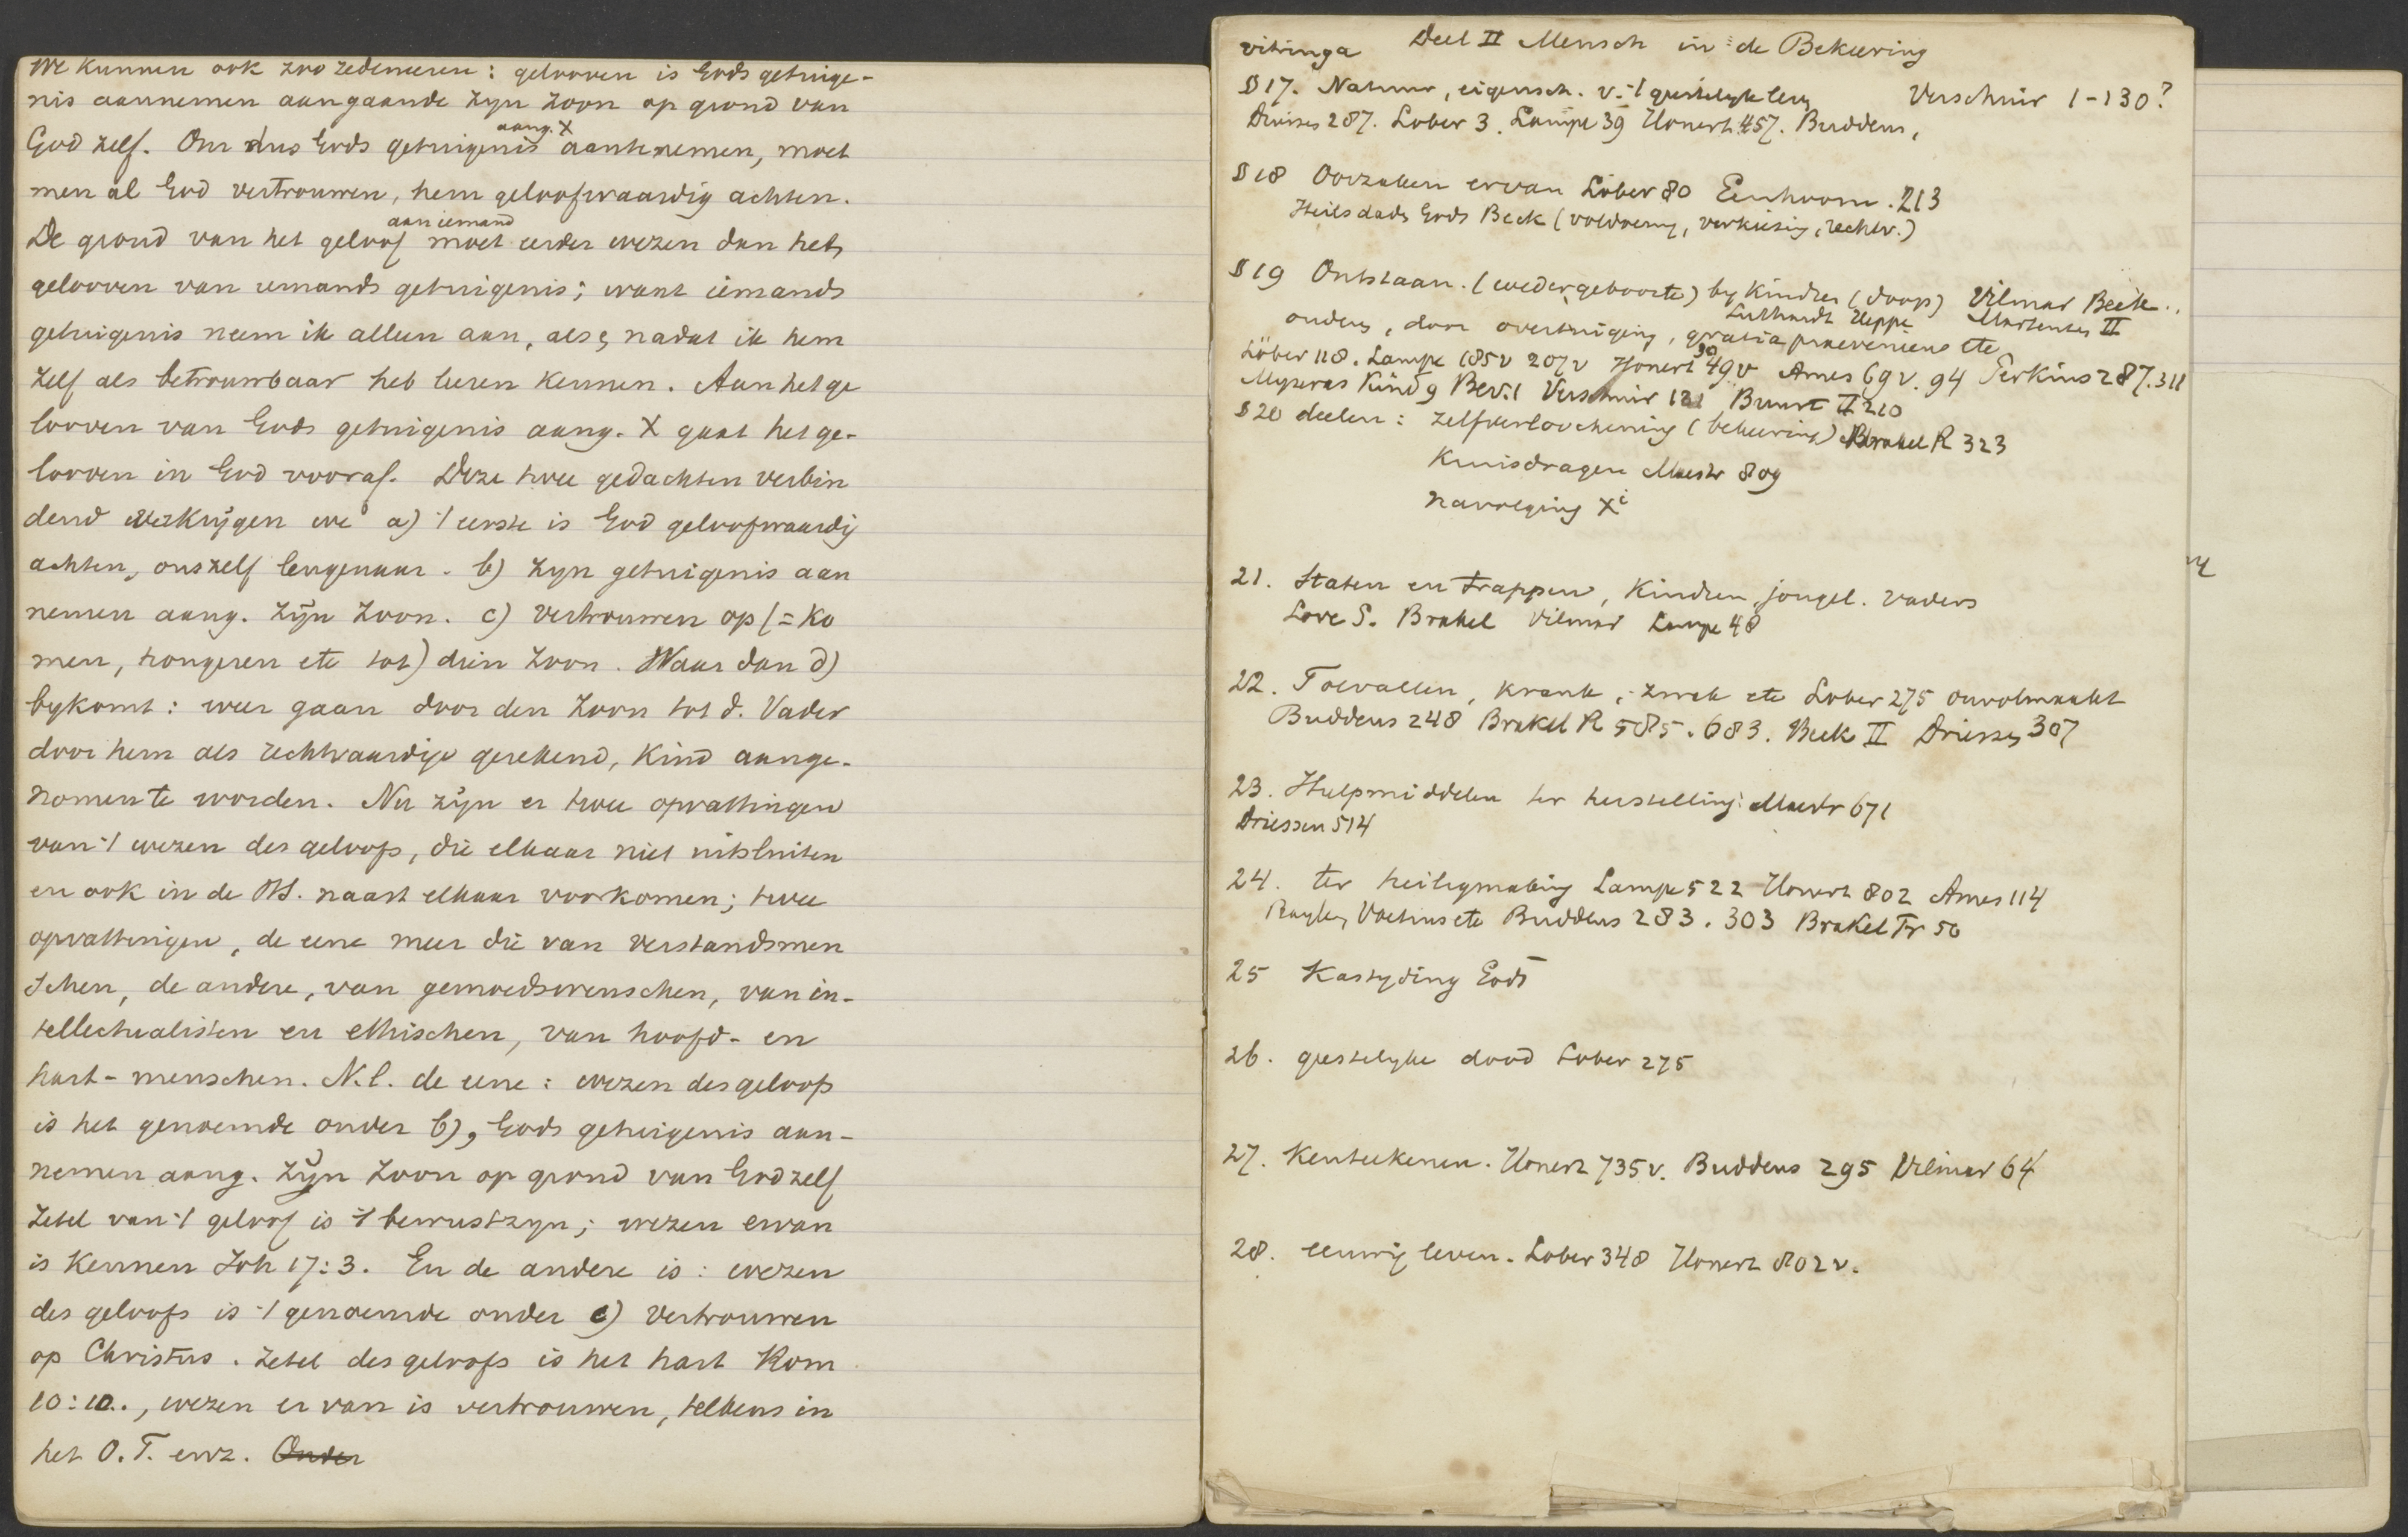 We kunnen ook zoo redeneeren: gelooven is Gods getuige-
nis aannemen aangaande zyn Zoon op grond van
God zelf. Om dus Gods getuigenis aang. X aantenemen, moet
men al God vertrouwen, hem geloofwaardig achten.
De grond van het geloof aan iemand moet eerder wezen dan het
gelooven van iemands getuigenis; want iemands
getuigenis neem ik alleen aan, als, nadat ik hem
zelf als betrouwbaar heb leeren kennen. Aan het ge
looven van Gods getuigenis aang. X gaat het ge-
looven in God vooraf. Deze twee gedachten verbin
dend verkrijgen we a) 't eerste is God geloofwaardig
achten, onszelf leugenaar. b) zyn getuigenis aan
nemen aang. zijn Zoon. c) vertrouwen op (= ko
men, hongeren etc tot) dien Zoon. Waar dan d)
bykomt: weer gaan door den Zoon tot d. Vader
door hem als rechtvaardige gerekend, kind aange-
nomen te worden. Nu zijn er twee opvattingen
van 't wezen des geloofs, die elkaar niet uitsluiten
en ook in de HS. naast elkaar voorkomen; twee
opvattingen, de eene meer die van verstandsmen
schen, de andere, van gemoedsmenschen, van in-
tellectualisten en ethischen, van hoofd- en
hart-menschen. N.l. de eene: wezen des geloofs
is het genoemde onder b), Gods getuigenis aan-
nemen aang. zijn Zoon op grond van God zelf
zetel van 't geloof is 't bewustzyn; wezen ervan
is kennen Joh 17:3. En de andere is: wezen
des geloofs is 't genoemde onder c) vertrouwen
op Christus. zetel des geloofs is het hart Rom
10:10., wezen er van is vertrouwen, telkens in
het O.T. enz. Onder
vitringa Deel II Mensch in de Bekeering
§ 17. Natuur, eigensch. v. 't geestelyk leven Verschuir 1-130?
Driessen 287. Lober 3. Lampe 39 Honert 457. Buddeus,
§ 18 Oorzaken ervan Löber 80 Eenhoorn. 213
Heilsdads Gods Beck (voldoening, verkiezing, rechtv.)
§ 19 Ontstaan. (wedergeboorte) by kindren (doop) Vilmar Beck.
Luthardt Heppe Martensen II
ouders, door overtuiging, gratia praeveniens etc
Löber 118. Lampe 185v 207v Honert 30 49v Ames 69v. 94 Perkins 287. 311
Myseras Kind 9 Bev. 1 Verschuir 121 Buurt II 210
§ 20 deelen: zelfverloochening (bekeering) Brakel R 323
Kruisdragen Maestr 809
navolging Xi
21. Staten en trappen, kindren, jongel. vaders
Love S. Brakel Vilmar Lampe 48
22. Toevallen, krank, zwak etc Lober 275 onvolmaakt
Buddeus 248 Brakel R 585. 683. Beck II Driessen 307
23. Hulpmiddelen ter herstelling: Maestr 671
Driessen 514
24. ter heiligmaking Lampe 522 Honert 802 Ames 114
Voetius etc Buddeus 283. 303 Brakel Tr 50
25 Kastyding Gods
26. geestelyke dood Lober 275
27. Kenteekenen. Honert 735v. Buddeus 295 Vilmar 64
28. eeuwig leven. Lober 348 Honert 802v.